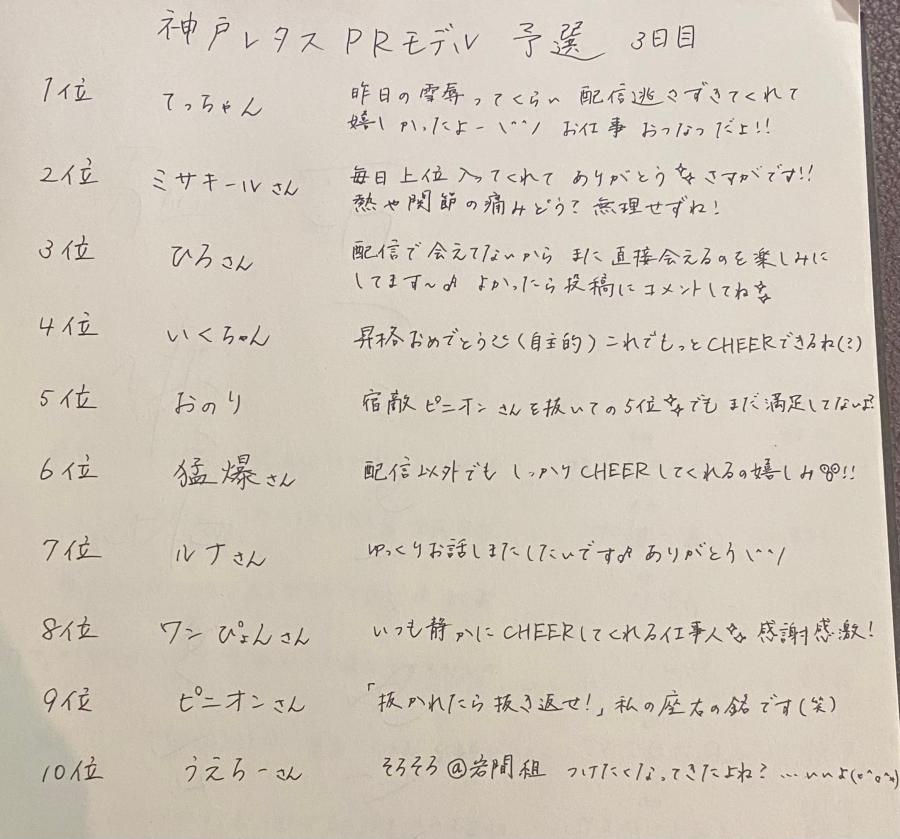 神戸レタス PRモデル 予選 3日目
1位 てっちゃん 昨日の雪辱ってくらい 配信逃さずきてくれて
嬉しかったよー\(^^)/ お仕事 おつなつだよ!!
2位 ミサキールさん 毎日上位入ってくれて ありがとう✨ さすがです!!
熱や関節の痛みどう? 無理せずね!
3位 ひろさん 配信で会えてないから また直接会えるのを楽しみに
してます〜♪ よかったら投稿にコメントしてね✨
4位 いくちゃん 昇格おめでとう(自主的)これでもっとCHEERできるね(?)
5位 おのり 宿敵ピニオンさんを抜いての5位✨でも まだ満足してないよ?
6位 猛爆さん 配信以外でも しっかりCHEERしてくれるの嬉しみ!!
7位 ルナさん ゆっくりお話しまたしたいです♪ ありがとう\(^^)/
8位 ワンぴょんさん いつも静かにCHEERしてくれる仕事人✨ 感謝感激!
9位 ピニオンさん 「抜かれたら抜き返せ!」私の座右の銘です(笑)
10位 うえちーさん そろそろ@岩間組 つけたくなってきたよね? …いいよ(o^o^o)